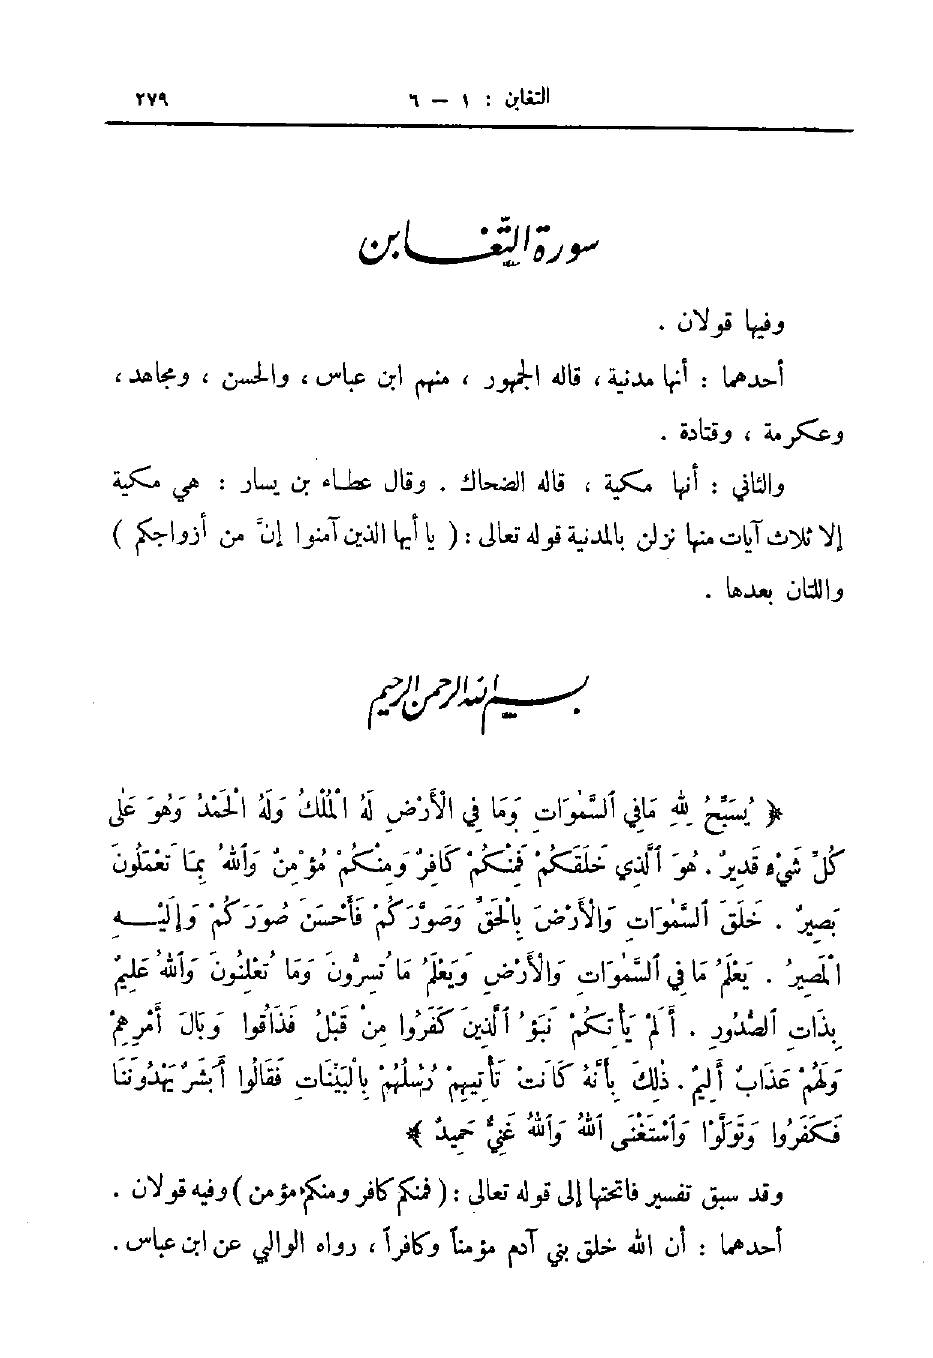 التغابن : ١ – ٦ ٢٧٩
سورة التغابن
وفيها قولان .
أحدهما : أنها مدنية ، قاله الجمهور ، منهم ابن عباس ، والحسن ، ومجاهد ،
وعكرمة ، وقتادة .
والثاني : أنها مكية ، قاله الضحاك . وقال عطاء بن يسار : هي مكية
إلا ثلاث آيات منها نزلن بالمدنية قوله تعالى : ( يا أيها الذين آمنوا إنَّ من أزواجكم )
واللتان بعدها .
بسم الله الرحمن الرحيم
﴿ يُسَبِّحُ لِلهِ مَا فِي السَّمٰوَاتِ وَمَا فِي الْأَرْضِ لَهُ الْمُلْكُ وَلَهُ الْحَمْدُ وَهُوَ عَلٰى
كُلِّ شَيْءٍ قَدِيرٌ . هُوَ الَّذِي خَلَقَكُمْ فَمِنْكُمْ كَافِرٌ وَمِنْكُمْ مُؤْمِنٌ وَاللهُ بِمَا تَعْمَلُونَ
بَصِيرٌ . خَلَقَ السَّمٰوَاتِ وَالْأَرْضَ بِالْحَقِّ وَصَوَّرَكُمْ فَأَحْسَنَ صُوَرَكُمْ وَإِلَيْهِ
الْمَصِيرُ . يَعْلَمُ مَا فِي السَّمٰوَاتِ وَالْأَرْضِ وَيَعْلَمُ مَا تُسِرُّونَ وَمَا تُعْلِنُونَ وَاللهُ عَلِيمٌ
بِذَاتِ الصُّدُورِ . أَلَمْ يَأْتِكُمْ نَبَؤُ الَّذِينَ كَفَرُوا مِنْ قَبْلُ فَذَاقُوا وَبَالَ أَمْرِهِمْ
وَلَهُمْ عَذَابٌ أَلِيمٌ . ذٰلِكَ بِأَنَّهُ كَانَتْ تَأْتِيهِمْ رُسُلُهُمْ بِالْبَيِّنَاتِ فَقَالُوا أَبَشَرٌ يَهْدُونَنَا
فَكَفَرُوا وَتَوَلَّوْا وَاسْتَغْنَى اللهُ وَاللهُ غَنِيٌّ حَمِيدٌ ﴾
وقد سبق تفسير فاتحتها إلى قوله تعالى : ( فمنكم كافر ومنكم مؤمن ) وفيه قولان .
أحدهما : أن الله خلق بني آدم مؤمناً وكافراً ، رواه الوالبي عن ابن عباس .